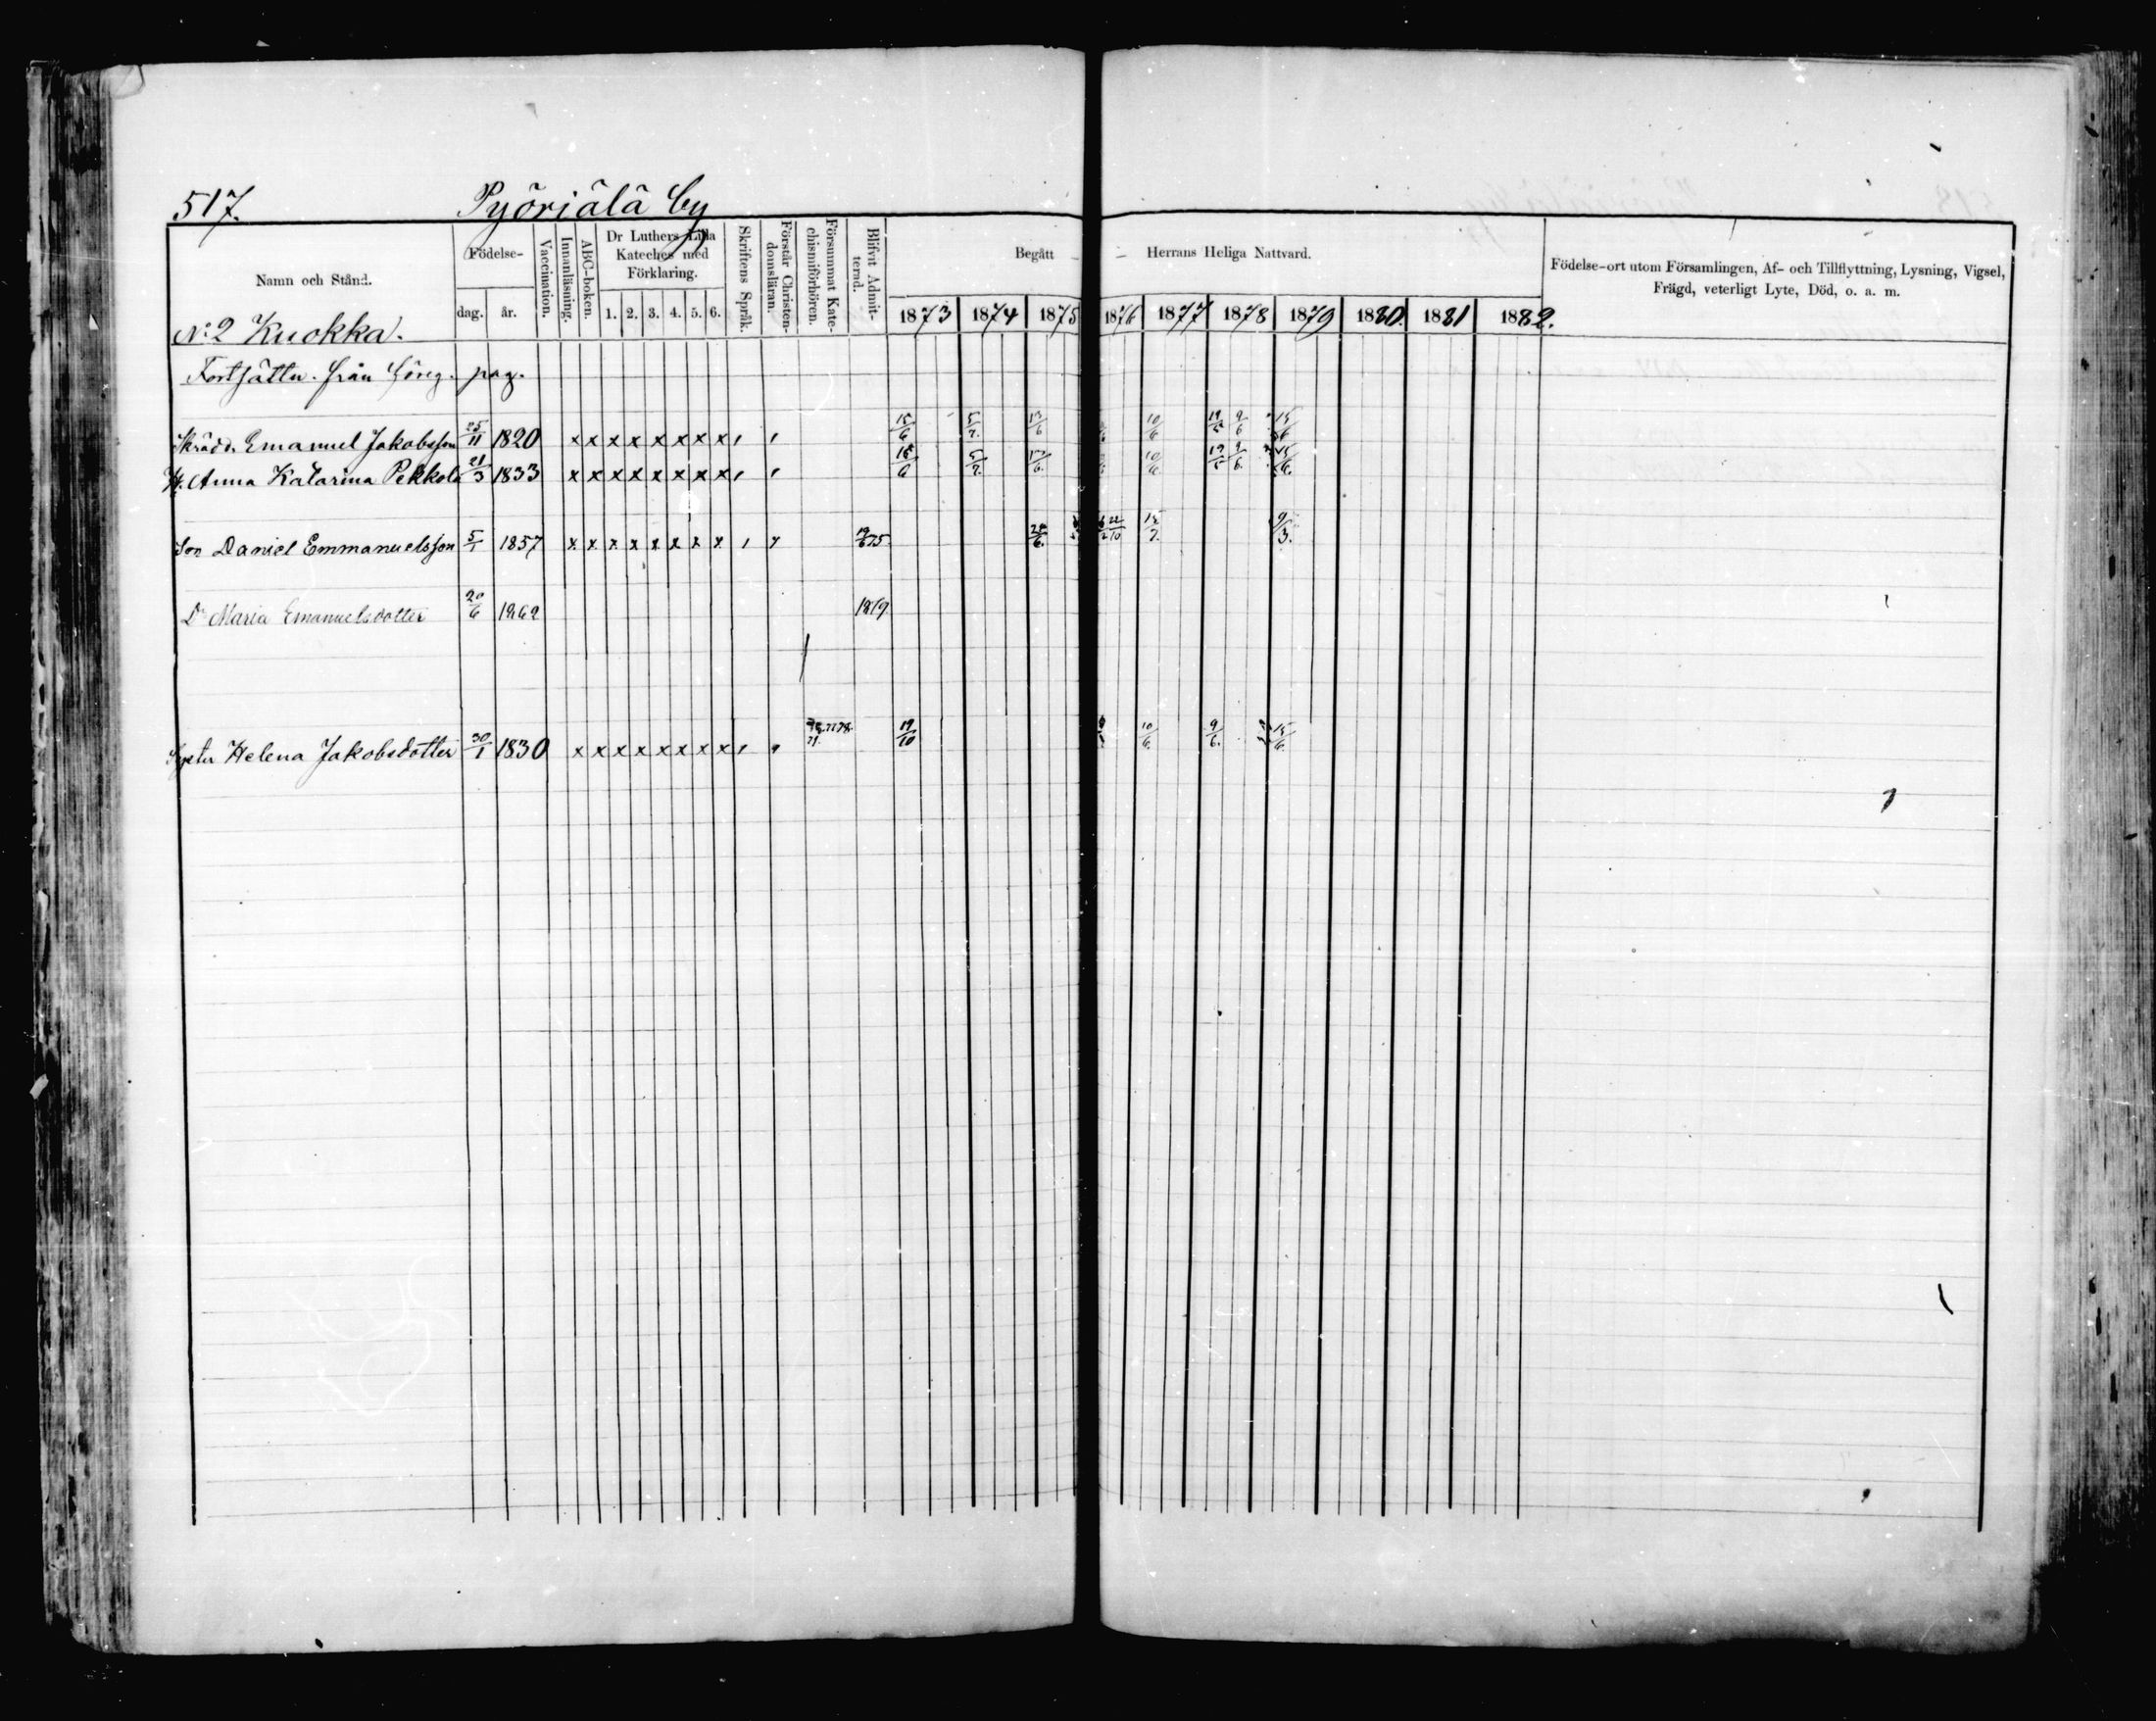 517. Pyöriälä by
Namn och Stånd.
Födelse-
dag. år.
Vaccination.
Innanläsning.
ABC-boken.
Dr Luthers Lilla
Kateches med
Förklaring.
1. 2. 3. 4. 5. 6.
Skriftens Språk.
Förstår Christen-
domsläran.
Försummat Kate-
chismiförhören.
Blifvit Admit-
terad.
Begått Herrans Heliga Nattvard.
1873 1874 1875 1876 1877 1878 1879 1880. 1881 1882.
Födelse-ort utom Församlingen, Af- och Tillflyttning, Lysning, Vigsel,
Frägd, veterligt Lyte, Död, o. a. m.
No 2 Kuokka.
Fortsättn. från föreg. pag.
Skrädd. Emanuel Jakobsson 25/11 1820 x x x x x x x x 5/7. 13/6 10/6 9/6 15/6
H. Anna Katarina Pekkola 21/3 1833 x x x x x x x x 5/7. 13/6. 10/6. 9/6. 15/6.
Son Daniel Emmanuelsson 5/1 1857 x x x x x x x x 15/7. 9/3.
Dr Maria Emanuelsdotter 20/6 1862 1879
Syster Helena Jakobsdotter 30/1 1830 x x x x x x x x 19/10 10/6. 9/6. 15/6.